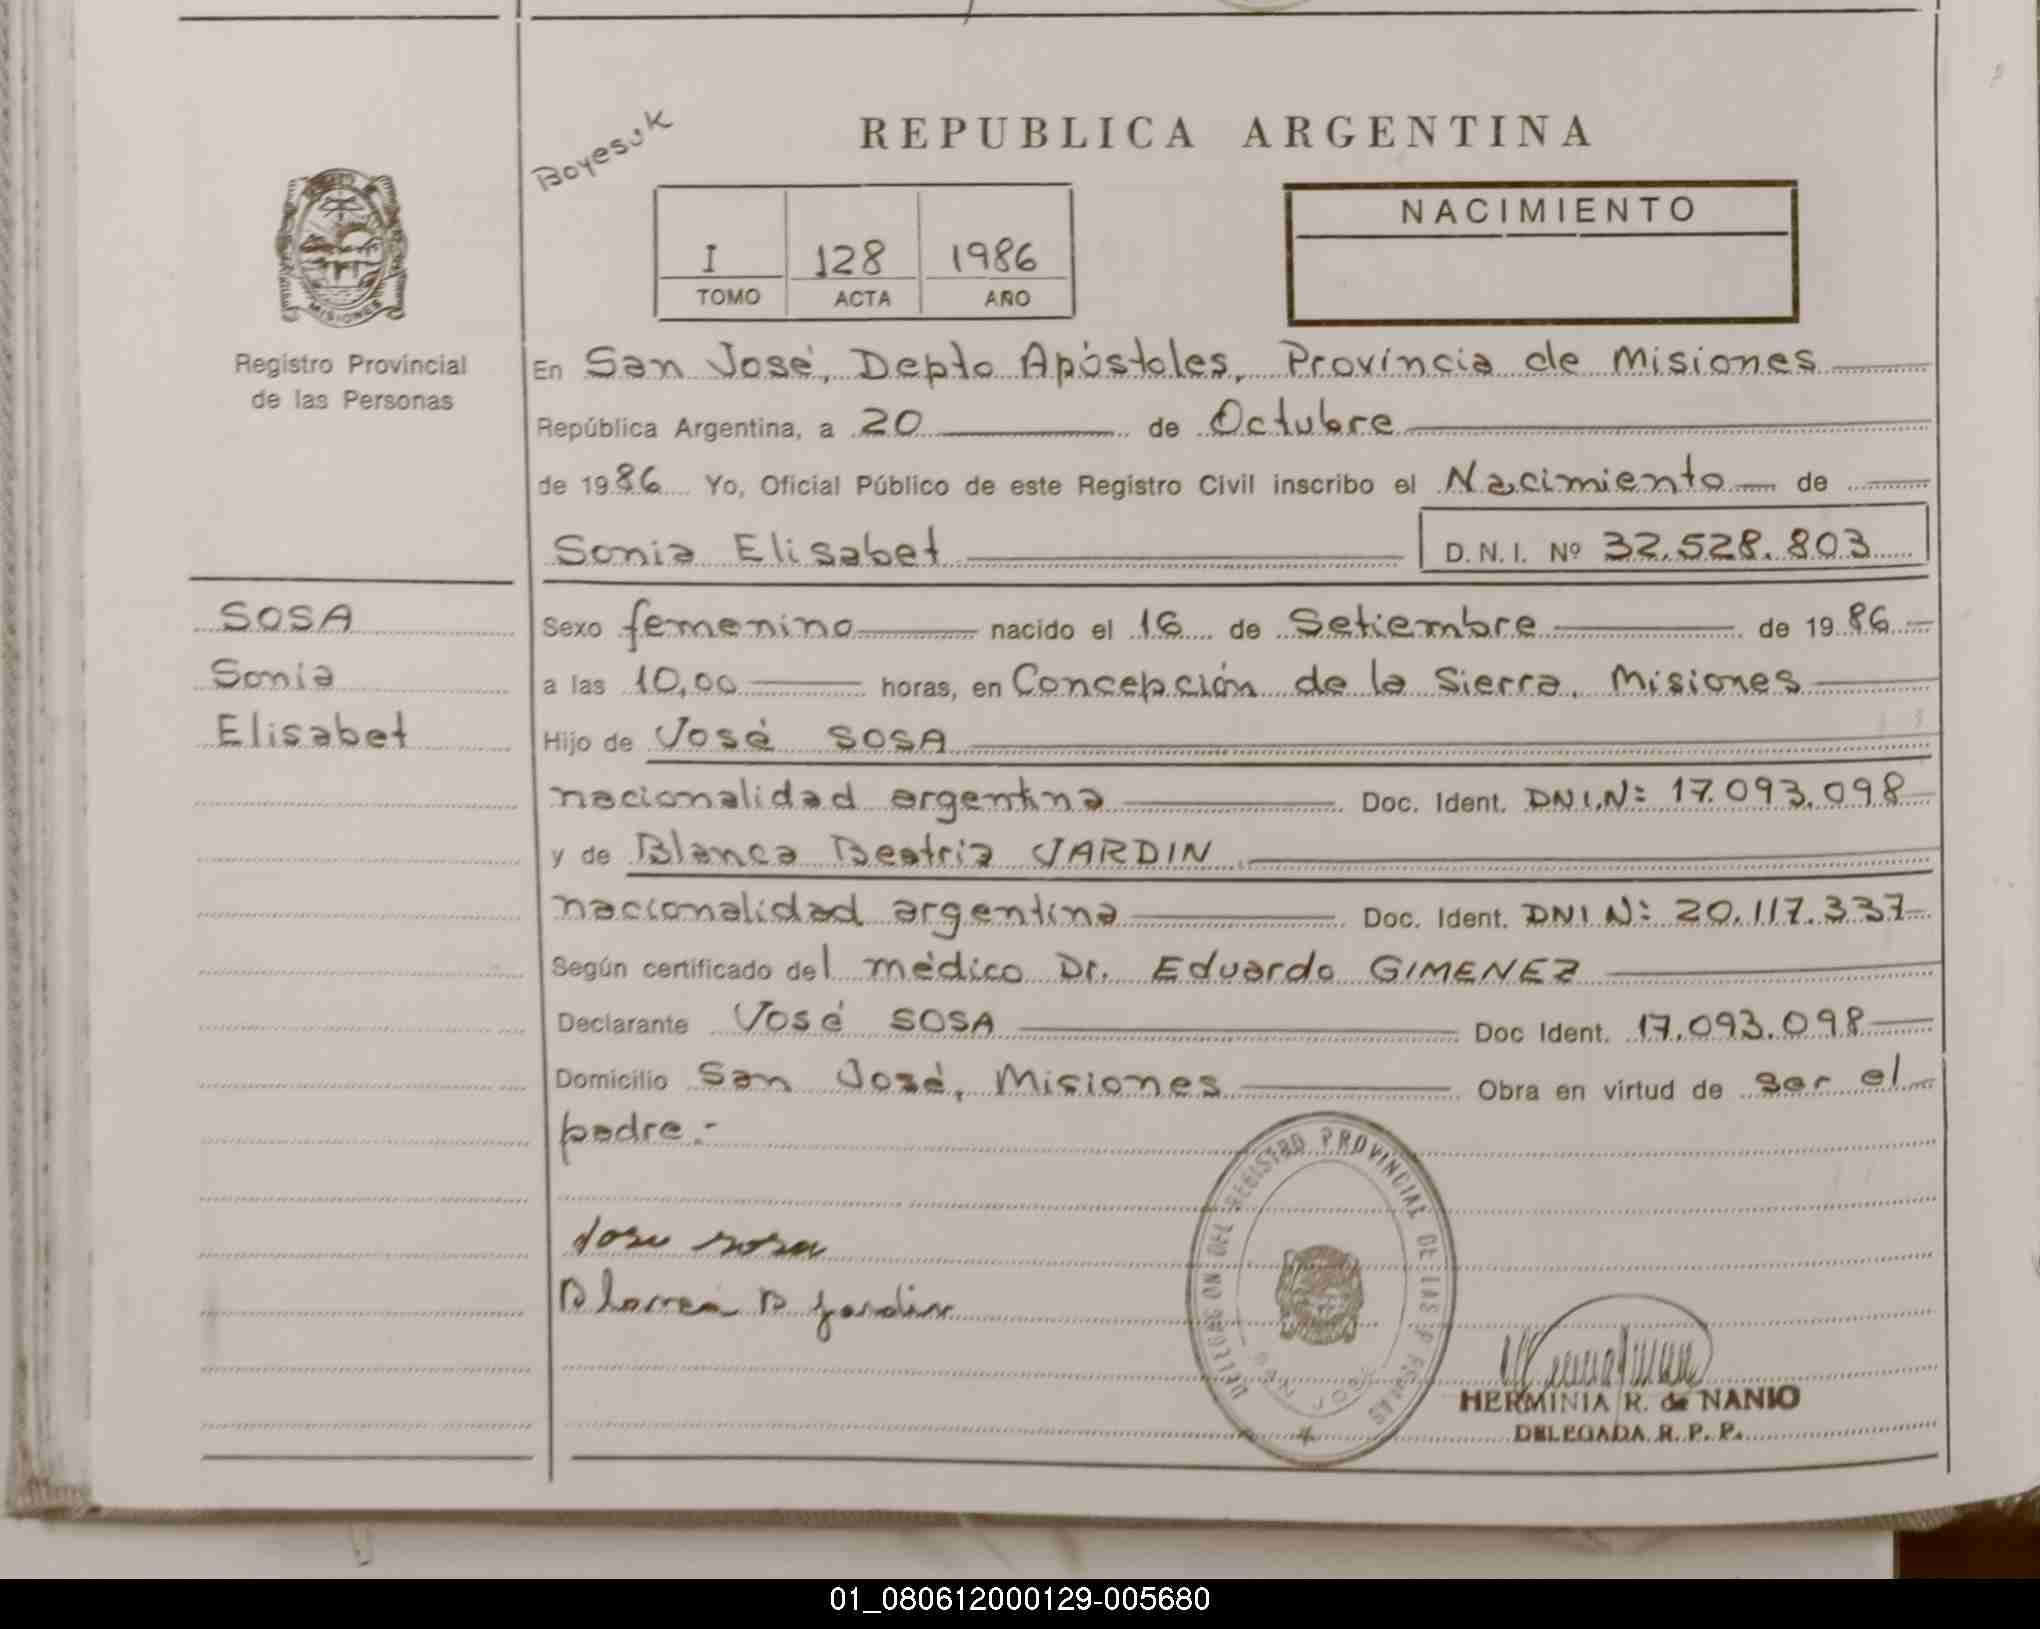 Boyesuk
REPUBLICA ARGENTINA
I 128 1986
TOMO ACTA AÑO
NACIMIENTO
MISIONES
Registro Provincial
de las Personas
En San José, Depto Apóstoles, Provincia de Misiones
República Argentina, a 20 de Octubre
de 1986 Yo, Oficial Público de este Registro Civil inscribo el Nacimiento de
Sonia Elisabet D.N.I. Nº 32.528.803
SOSA
Sonia
Elisabet
Sexo femenino nacido el 16 de Setiembre de 1986
a las 10,00 horas, en Concepción de la Sierra, Misiones
Hijo de José SOSA
nacionalidad argentina Doc. Ident. DNI.N: 17.093.098
y de Blanca Beatriz JARDIN
nacionalidad argentina Doc. Ident. DNI N: 20.117.337
Según certificado del médico Dr. Eduardo GIMENEZ
Declarante José SOSA Doc Ident. 17.093.098
Domicilio San José, Misiones Obra en virtud de ser el
padre.-
Jose sosa
Blanca B Jardin
DELEGACION DEL REGISTRO PROVINCIAL DE LAS PERSONAS
SAN JOSE
HERMINIA R. de NANIO
DELEGADA R. P. P.
01_080612000129-005680